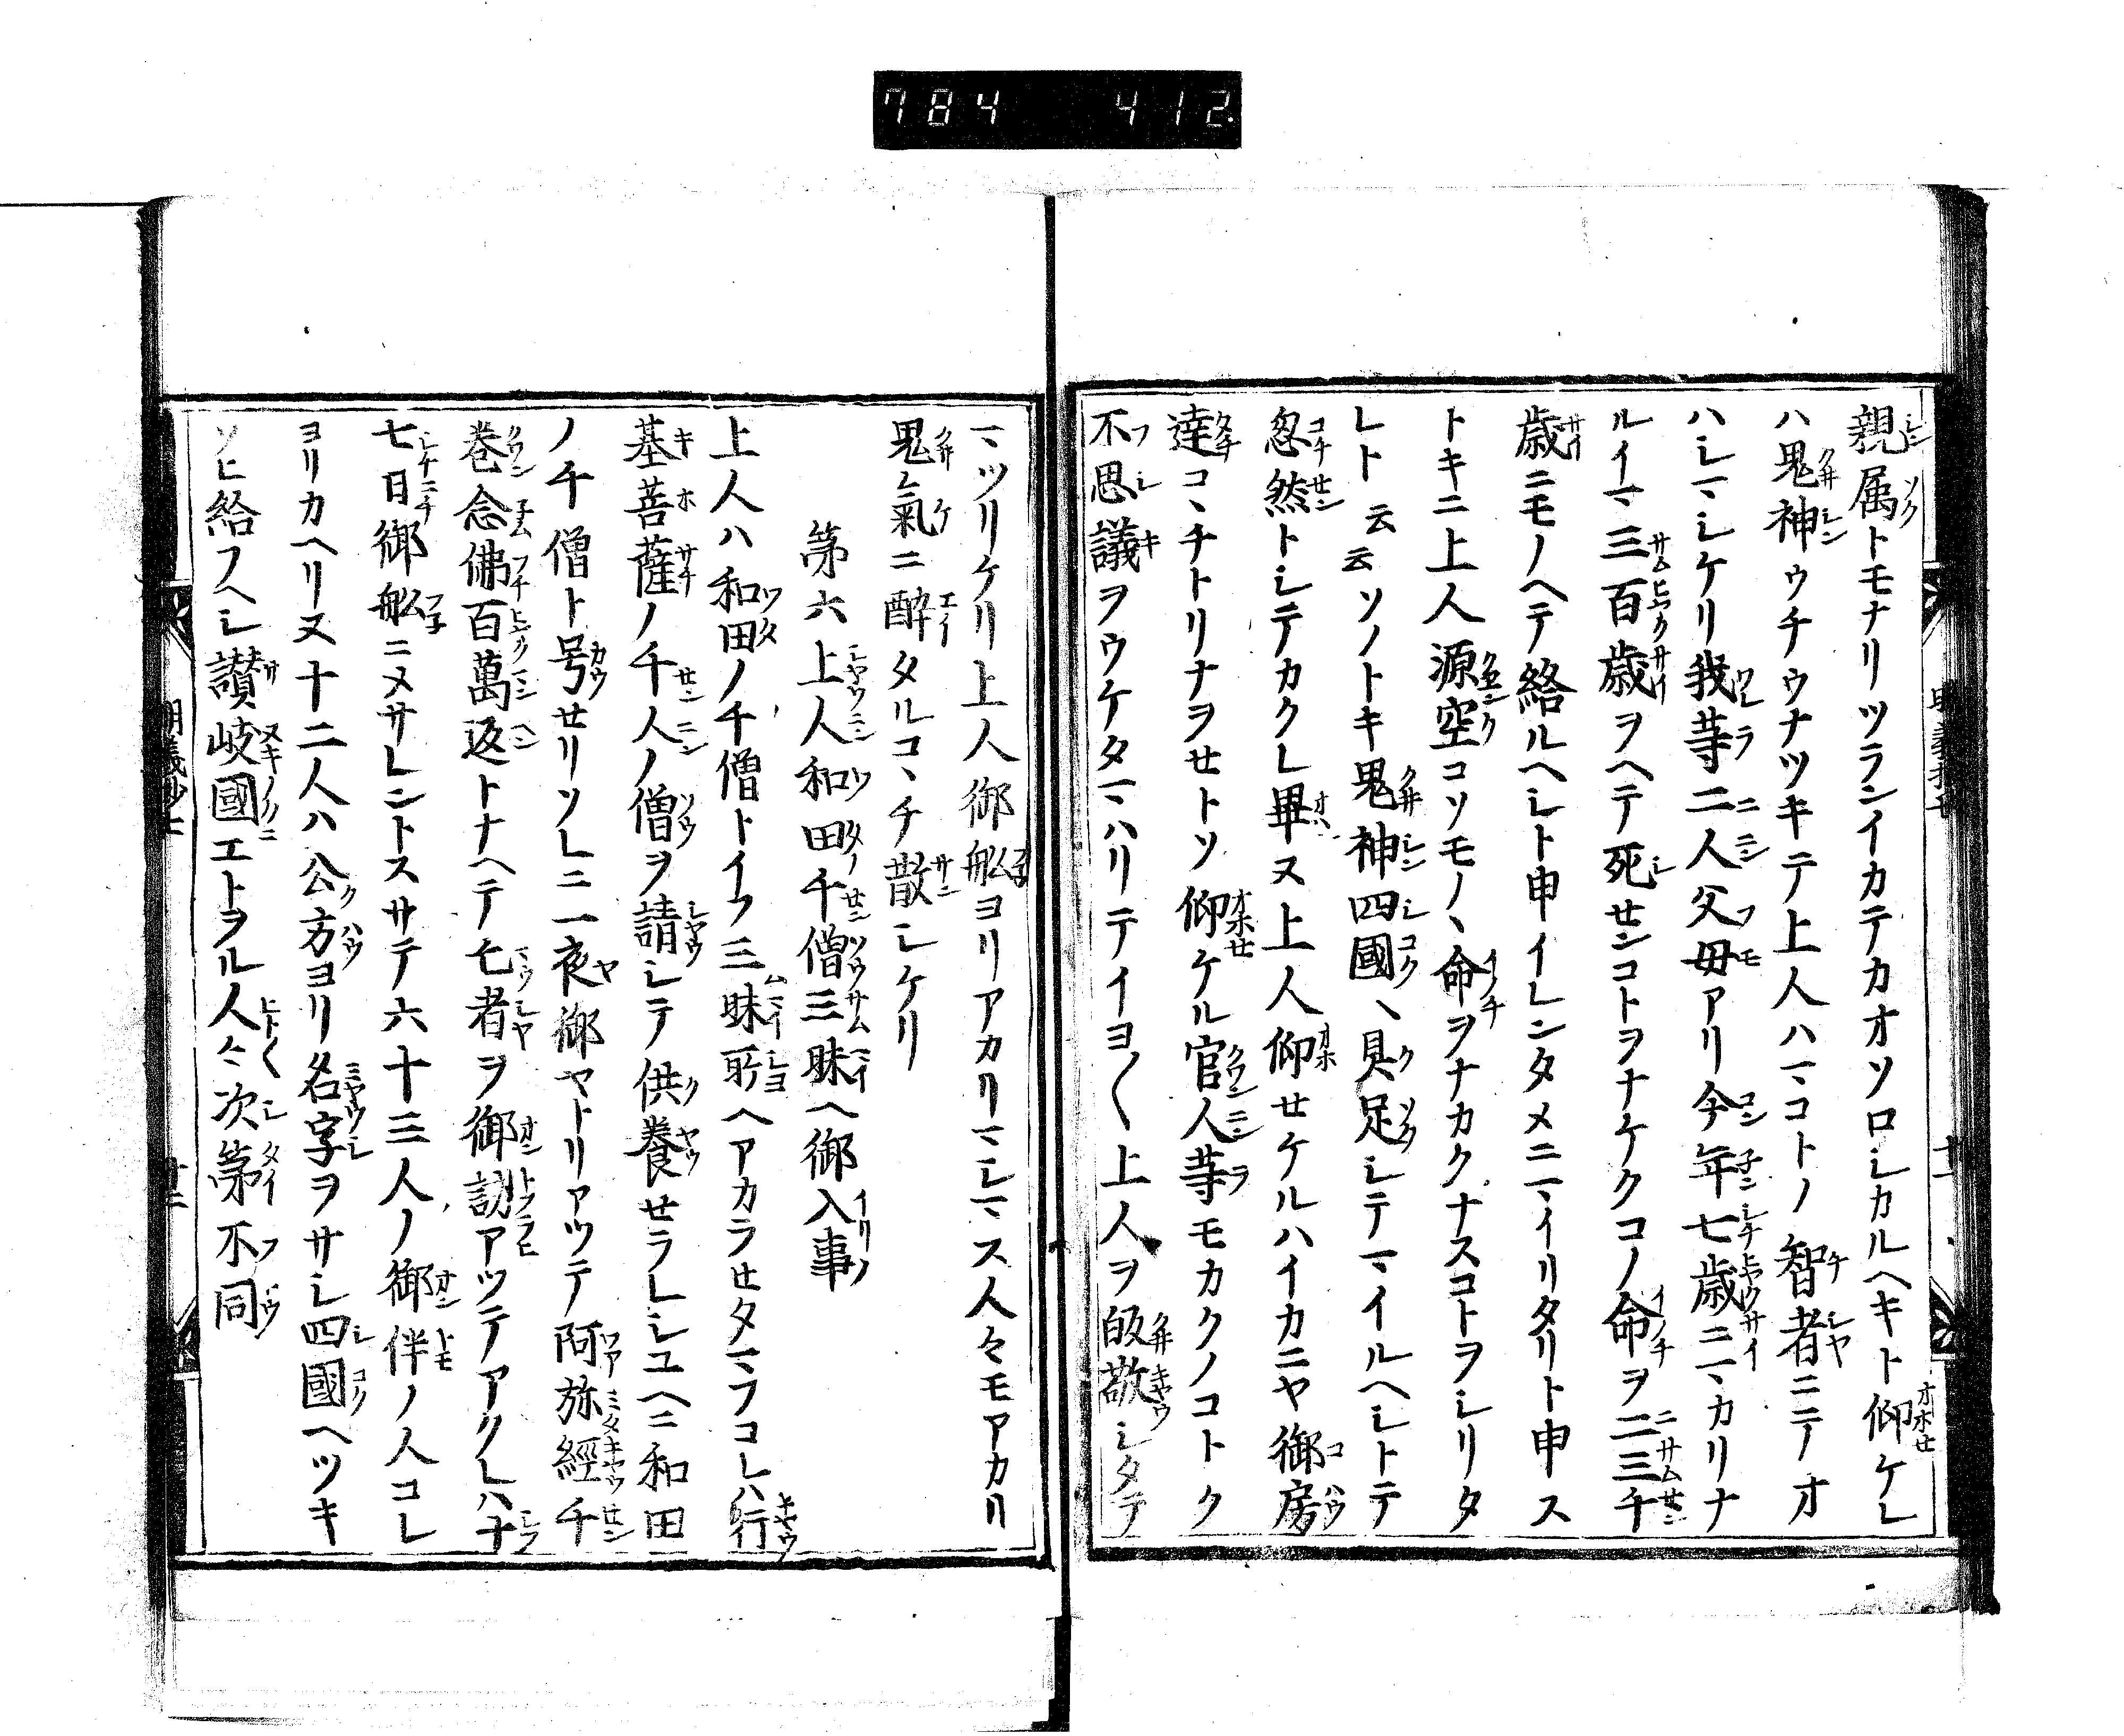 784 412
親属トモナリツランイカテカオソロシカルヘキト仰ケレ
ハ鬼神ウチウナツキテ上人ハマコトノ智者ニテオ
ハシマシケリ我等二人父母アリ今年七歳ニマカリナ
ルイマ三百歳ヲヘテ死センコトヲナケクコノ命ヲ二三千
歳ニモノヘテ給ルヘシト申イレンタメニマイリタリト申ス
トキニ上人源空コソモノヽ命ヲナカクナスコトヲシリタ
レト云云ソノトキ鬼神四國ヽ具足シテマイルヘシトテ
忽然トシテカクレ畢ヌ上人仰セケルハイカニヤ御房
達コヽチトリナヲセトソ仰ケル官人等モカクノコトク
不思議ヲウケタマハリテイヨ〱上人ヲ皈敬シタテ
マツリケリ上人御舩ヨリアカリマシマス人々モアカリ
鬼氣ニ醉タルコヽチ散シケリ
第六上人和田千僧三昧ヘ御入事
上人ハ和田ノ千僧トイフ三昧所ヘアカラセタマフコレハ行
基菩薩ノ千人ノ僧ヲ請シテ供養セラレシユヘニ和田
ノ千僧ト号セリソレニ一夜御ヤトリアツテ阿弥經千
巻念佛百萬返トナヘテ亡者ヲ御訪アツテアクレハ十
七日御舩ニメサレントスサテ六十三人ノ御伴ノ人コレ
ヨリカヘリヌ十二人ハ公方ヨリ名字ヲサシ四國ヘツキ
ソヒ給フヘシ讃岐國エトヲル人々次第不同